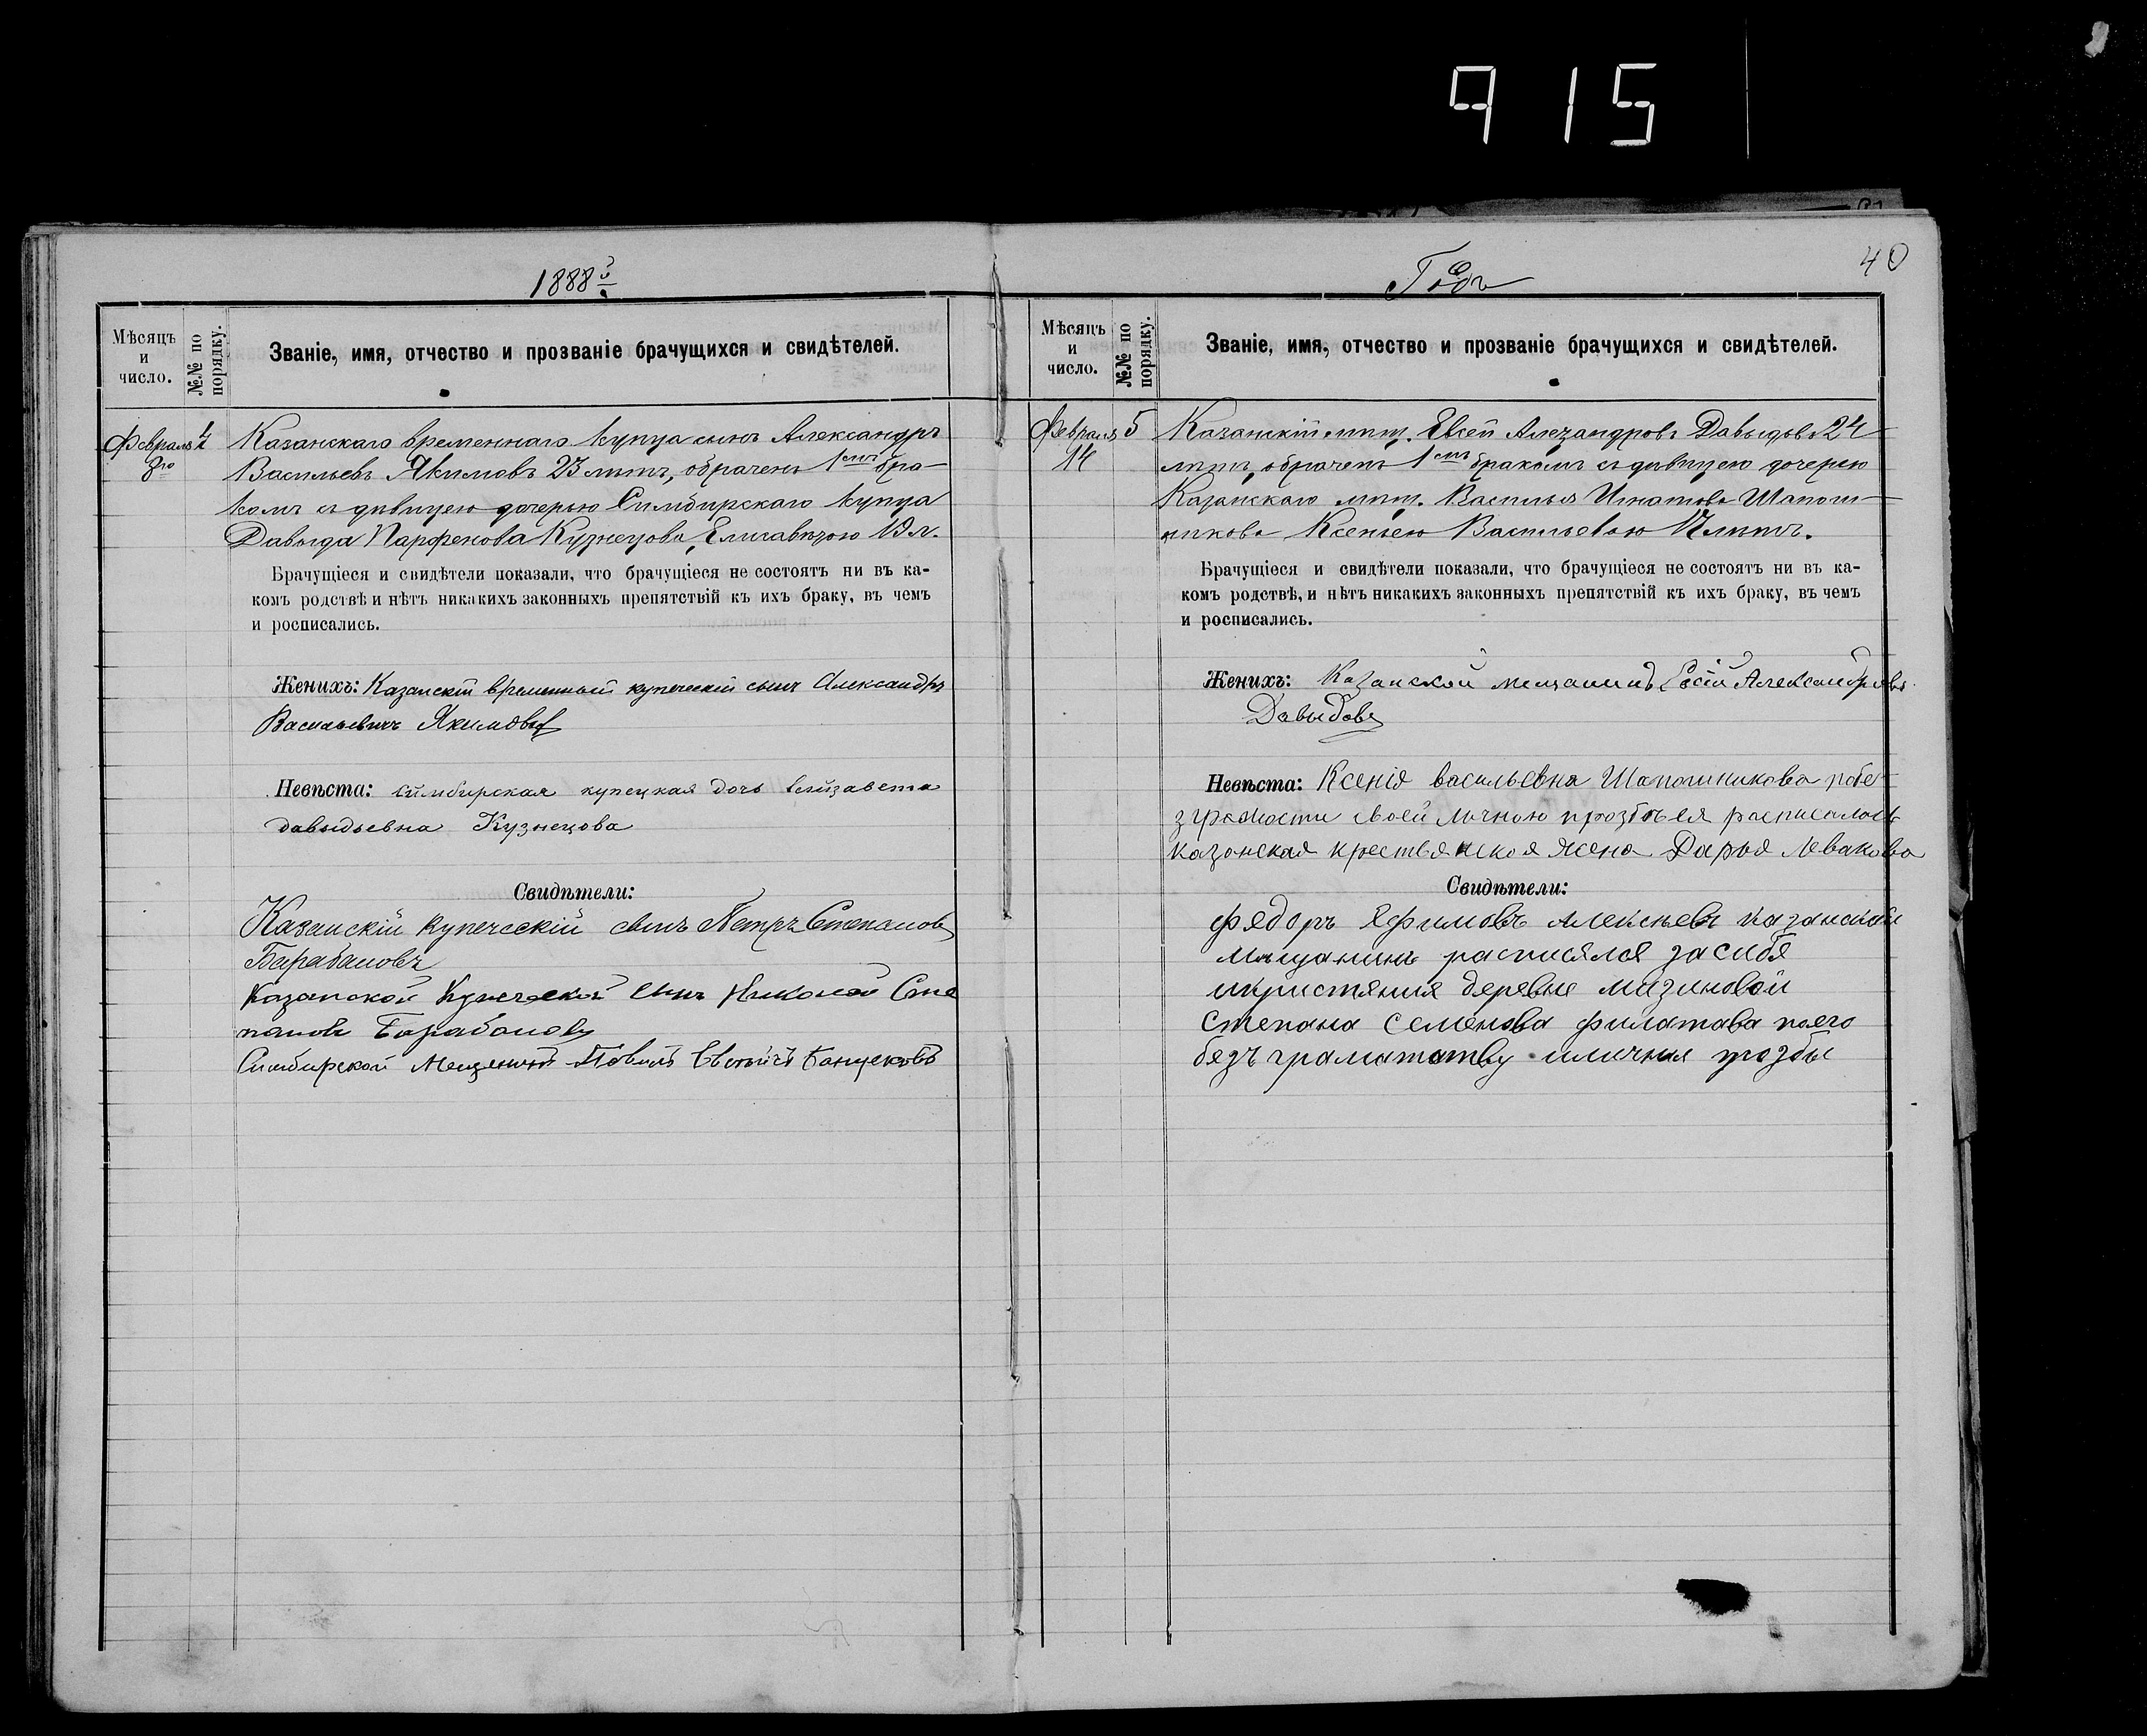 915
40
1888й
Годъ
Мѣсяцъ и число.
№№ по порядку.
Званіе, имя, отчество и прозваніе брачущихся и свидѣтелей.
Февраль
8го
Казанскаго временнаго купца сынъ Александръ
Васильевъ Якимовъ 23 лѣтъ, обрачен 1мъ бра-
комъ съ дѣвицею дочерью Симбирскаго купца
Давыда Парфенова Кузнецова, Елисаветою 19 л.
Брачущіеся и свидѣтели показали, что брачущіеся не состоятъ ни въ ка-
комъ родствѣ и нѣтъ никакихъ законныхъ препятствій къ ихъ браку, въ чемъ
и росписались.
Женихъ: Казанскій временный купеческій сынъ Александръ
Васильевичъ Якимовъ
Невѣста: симбирская купецкая дочь елизавета
давыдьевна Кузнецова
Свидѣтели:
Казанскій купеческій сынъ Петръ Степановъ
Барабановъ
Казанской Купеческой сынъ Николай Сте
пановъ Барабановъ
Симбирской Мещенинъ
Мѣсяцъ и число.
№№ по порядку.
Званіе, имя, отчество и прозваніе брачущихся и свидѣтелей.
Февраля 5
14
Казанскій мѣщ. Евсей Александровъ Давыдовъ 24
лѣтъ, обрачен 1мъ бракомъ съ дѣвицею дочерью
Казанскаго мѣщ. Василья Игнатова Шапош-
никова Ксеньею Васильевою лѣтъ.
Брачущіеся и свидѣтели показали, что брачущіеся не состоятъ ни въ ка-
комъ родствѣ, и нѣтъ никакихъ законныхъ препятствій къ ихъ браку, въ чемъ
и росписались.
Женихъ: Казанской мещанинъ Евсій Александровъ
Давыдовъ
Невѣста: Ксенія васильевна Шапошникова по бе
зграмости своей личною прозбыея расписалась
казанская крестьянская жена Дарья Левакова
Свидѣтели:
федоръ Яфимовъ алексѣевъ казанской
мящанинъ расписялся засибя
икристяния деревне мизиновой
степана семенова филатава поего
безъ граматству иличная прозбы